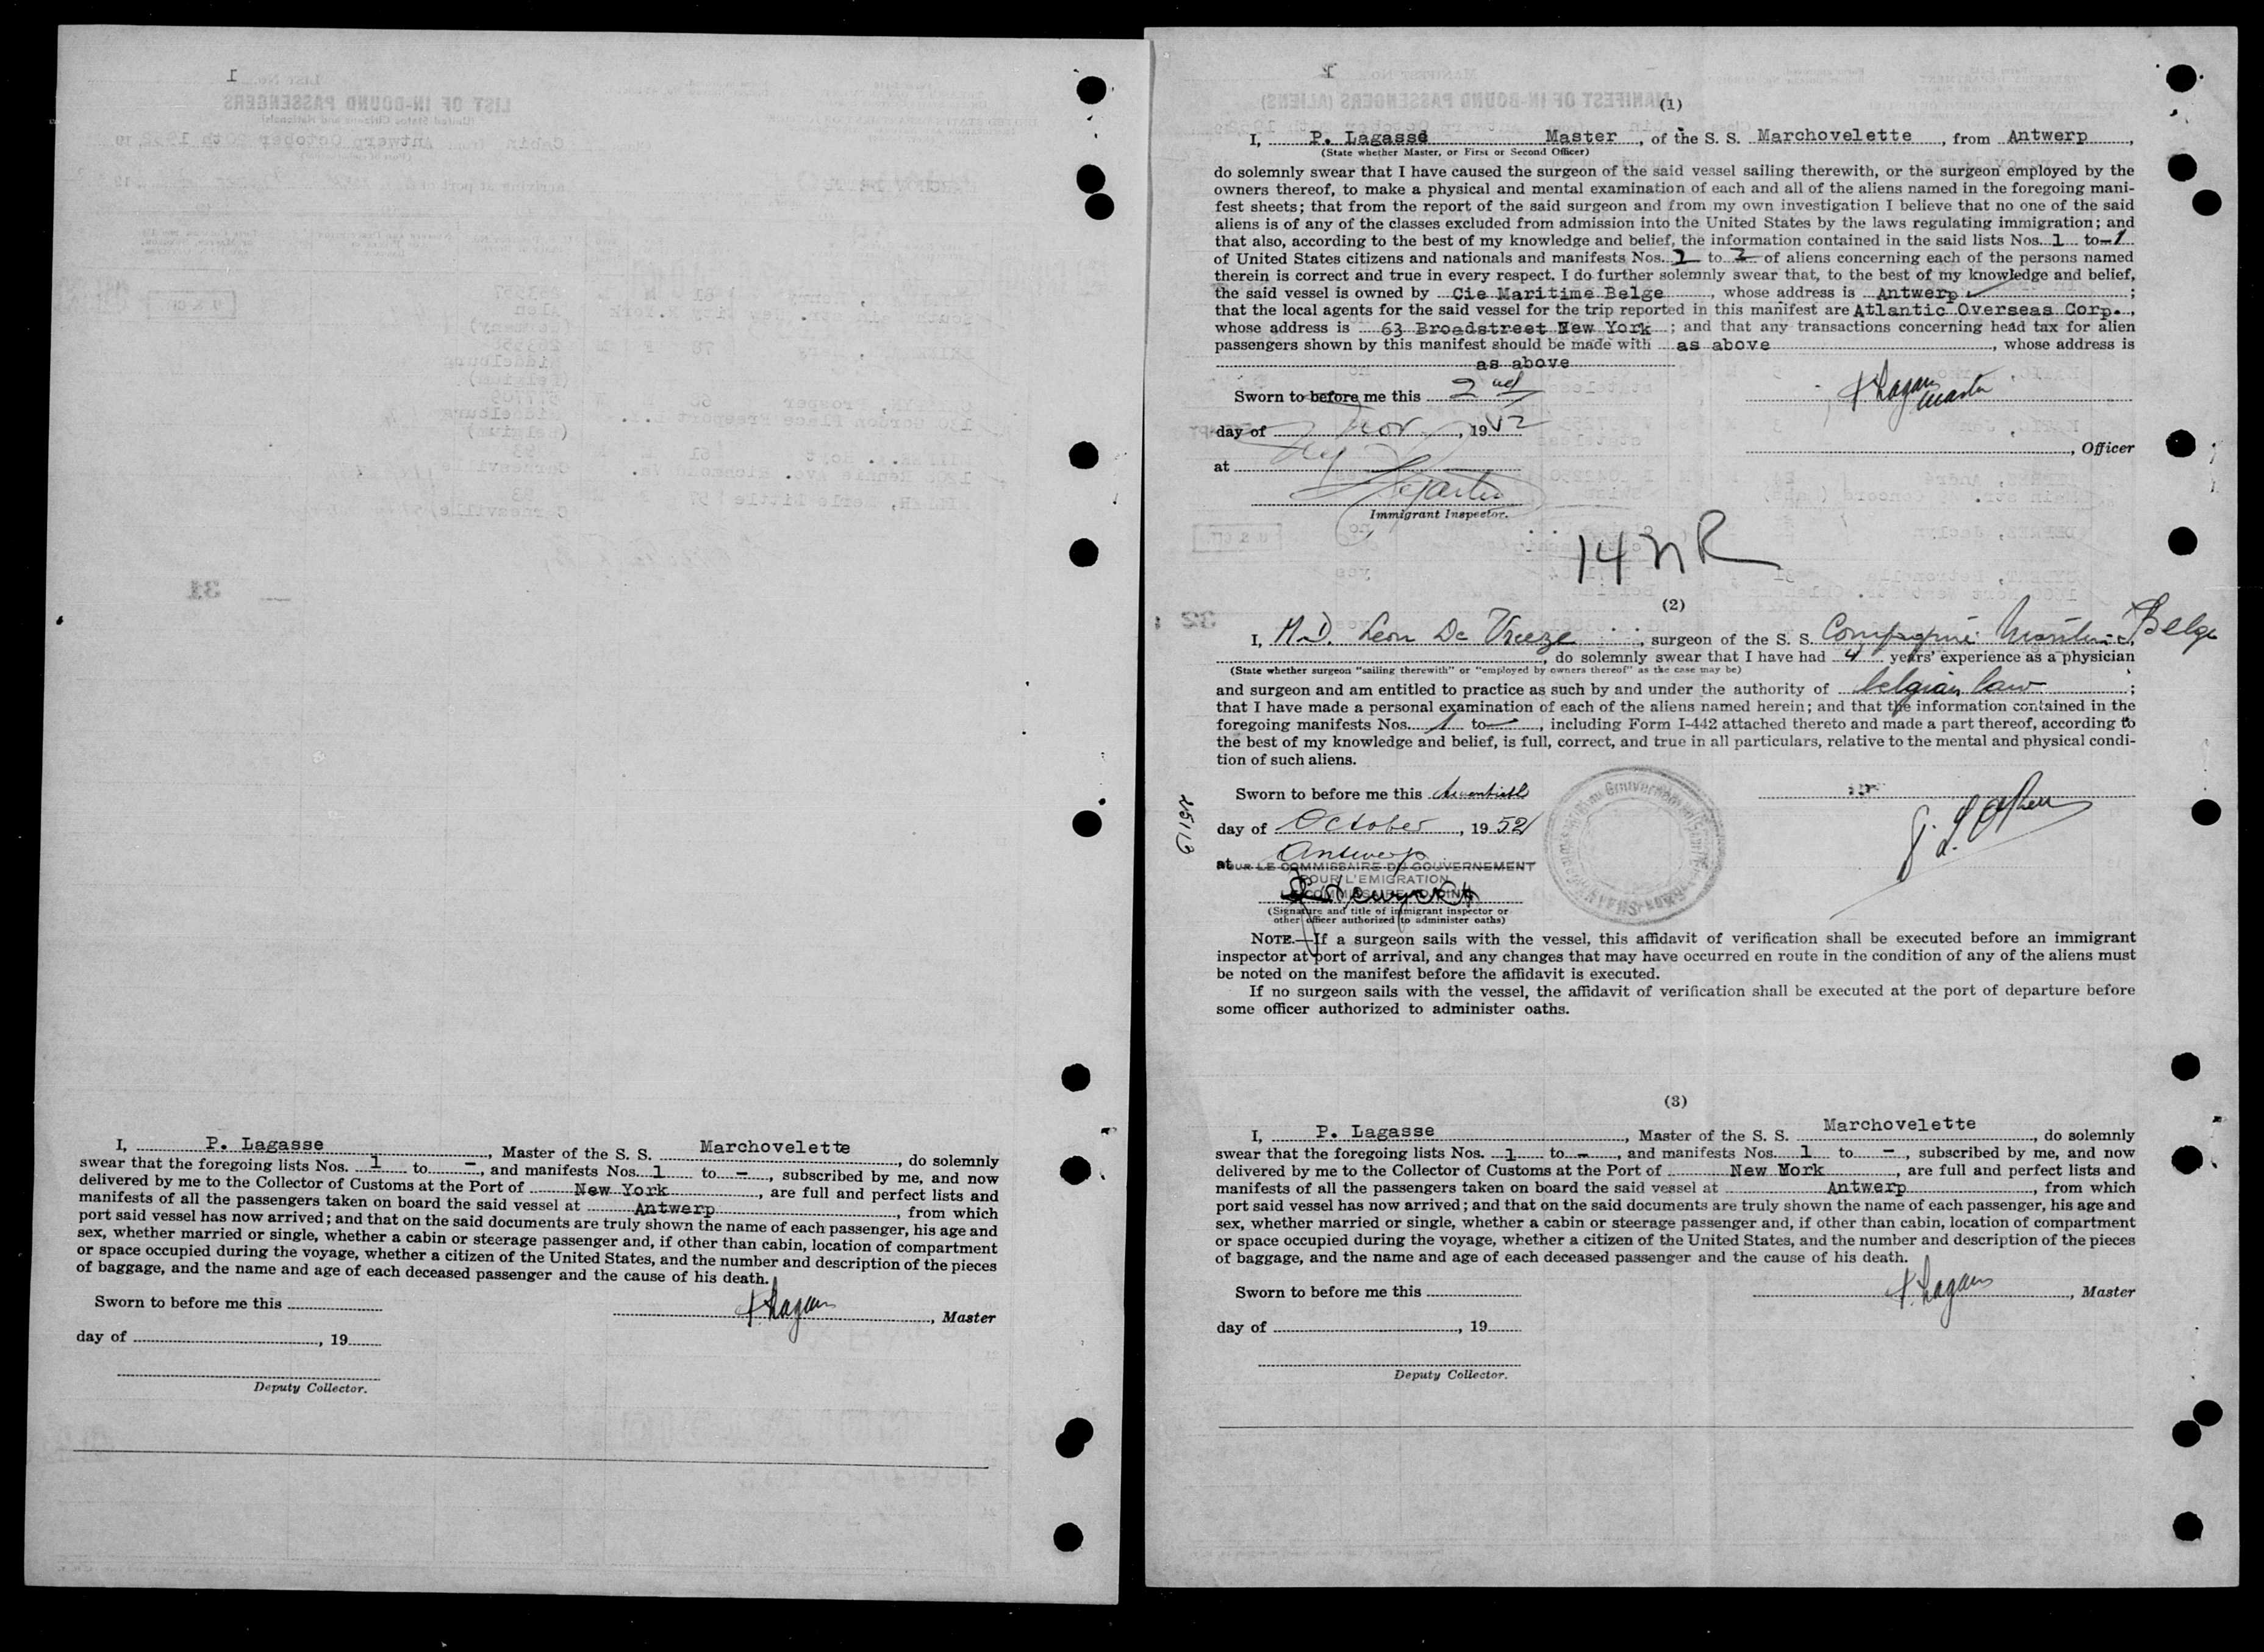 I, P. Lagasse, Master of the S. S. Marchovelette, do solemnly
swear that the foregoing lists Nos. 1 to -, and manifests Nos. 1 to -, subscribed by me, and now
delivered by me to the Collector of Customs at the Port of New York, are full and perfect lists and
manifests of all the passengers taken on board the said vessel at Antwerp, from which
port said vessel has now arrived; and that on the said documents are truly shown the name of each passenger, his age and
sex, whether married or single, whether a cabin or steerage passenger and, if other than cabin, location of compartment
or space occupied during the voyage, whether a citizen of the United States, and the number and description of the pieces
of baggage, and the name and age of each deceased passenger and the cause of his death.
Sworn to before me this
P. Lagasse, Master
day of , 19
Deputy Collector.
(1)
I, P. Lagassé Master, of the S. S. Marchovelette, from Antwerp,
(State whether Master, or First or Second Officer)
do solemnly swear that I have caused the surgeon of the said vessel sailing therewith, or the surgeon employed by the
owners thereof, to make a physical and mental examination of each and all of the aliens named in the foregoing mani-
fest sheets; that from the report of the said surgeon and from my own investigation I believe that no one of the said
aliens is of any of the classes excluded from admission into the United States by the laws regulating immigration; and
that also, according to the best of my knowledge and belief, the information contained in the said lists Nos. 1 to 1
of United States citizens and nationals and manifests Nos. to 2 of aliens concerning each of the persons named
therein is correct and true in every respect. I do further solemnly swear that, to the best of my knowledge and belief,
the said vessel is owned by Cie Maritime Belge, whose address is Antwerp;
that the local agents for the said vessel for the trip reported in this manifest are Atlantic Overseas Corp.,
whose address is 63 Broadstreet New York; and that any transactions concerning head tax for alien
passengers shown by this manifest should be made with as above, whose address is
as above
Sworn to before me this 2nd
P. Lagasse Master
day of Nov, 1952
, Officer
at NY
Immigrant Inspector.
14 NR
(2)
I, M.D. Leon De Vreeze, surgeon of the S. S. Compagnie Maritime Belge
, do solemnly swear that I have had 4 years' experience as a physician
(State whether surgeon "sailing therewith" or "employed by owners thereof" as the case may be)
and surgeon and am entitled to practice as such by and under the authority of belgian law;
that I have made a personal examination of each of the aliens named herein; and that the information contained in the
foregoing manifests Nos. 1 to -, including Form I-442 attached thereto and made a part thereof, according to
the best of my knowledge and belief, is full, correct, and true in all particulars, relative to the mental and physical condi-
tion of such aliens.
Sworn to before me this
day of October, 1952
at Antwerp
POUR LE COMMISSAIRE DU GOUVERNEMENT
POUR L'EMIGRATION
(Signature and title of immigrant inspector or
other officer authorized to administer oaths)
NOTE.—If a surgeon sails with the vessel, this affidavit of verification shall be executed before an immigrant
inspector at port of arrival, and any changes that may have occurred en route in the condition of any of the aliens must
be noted on the manifest before the affidavit is executed.
If no surgeon sails with the vessel, the affidavit of verification shall be executed at the port of departure before
some officer authorized to administer oaths.
(3)
I, P. Lagasse, Master of the S. S. Marchovelette, do solemnly
swear that the foregoing lists Nos. 1 to -, and manifests Nos. 1 to -, subscribed by me, and now
delivered by me to the Collector of Customs at the Port of New Mork, are full and perfect lists and
manifests of all the passengers taken on board the said vessel at Antwerp, from which
port said vessel has now arrived; and that on the said documents are truly shown the name of each passenger, his age and
sex, whether married or single, whether a cabin or steerage passenger and, if other than cabin, location of compartment
or space occupied during the voyage, whether a citizen of the United States, and the number and description of the pieces
of baggage, and the name and age of each deceased passenger and the cause of his death.
Sworn to before me this
P. Lagasse, Master
day of , 19
Deputy Collector.